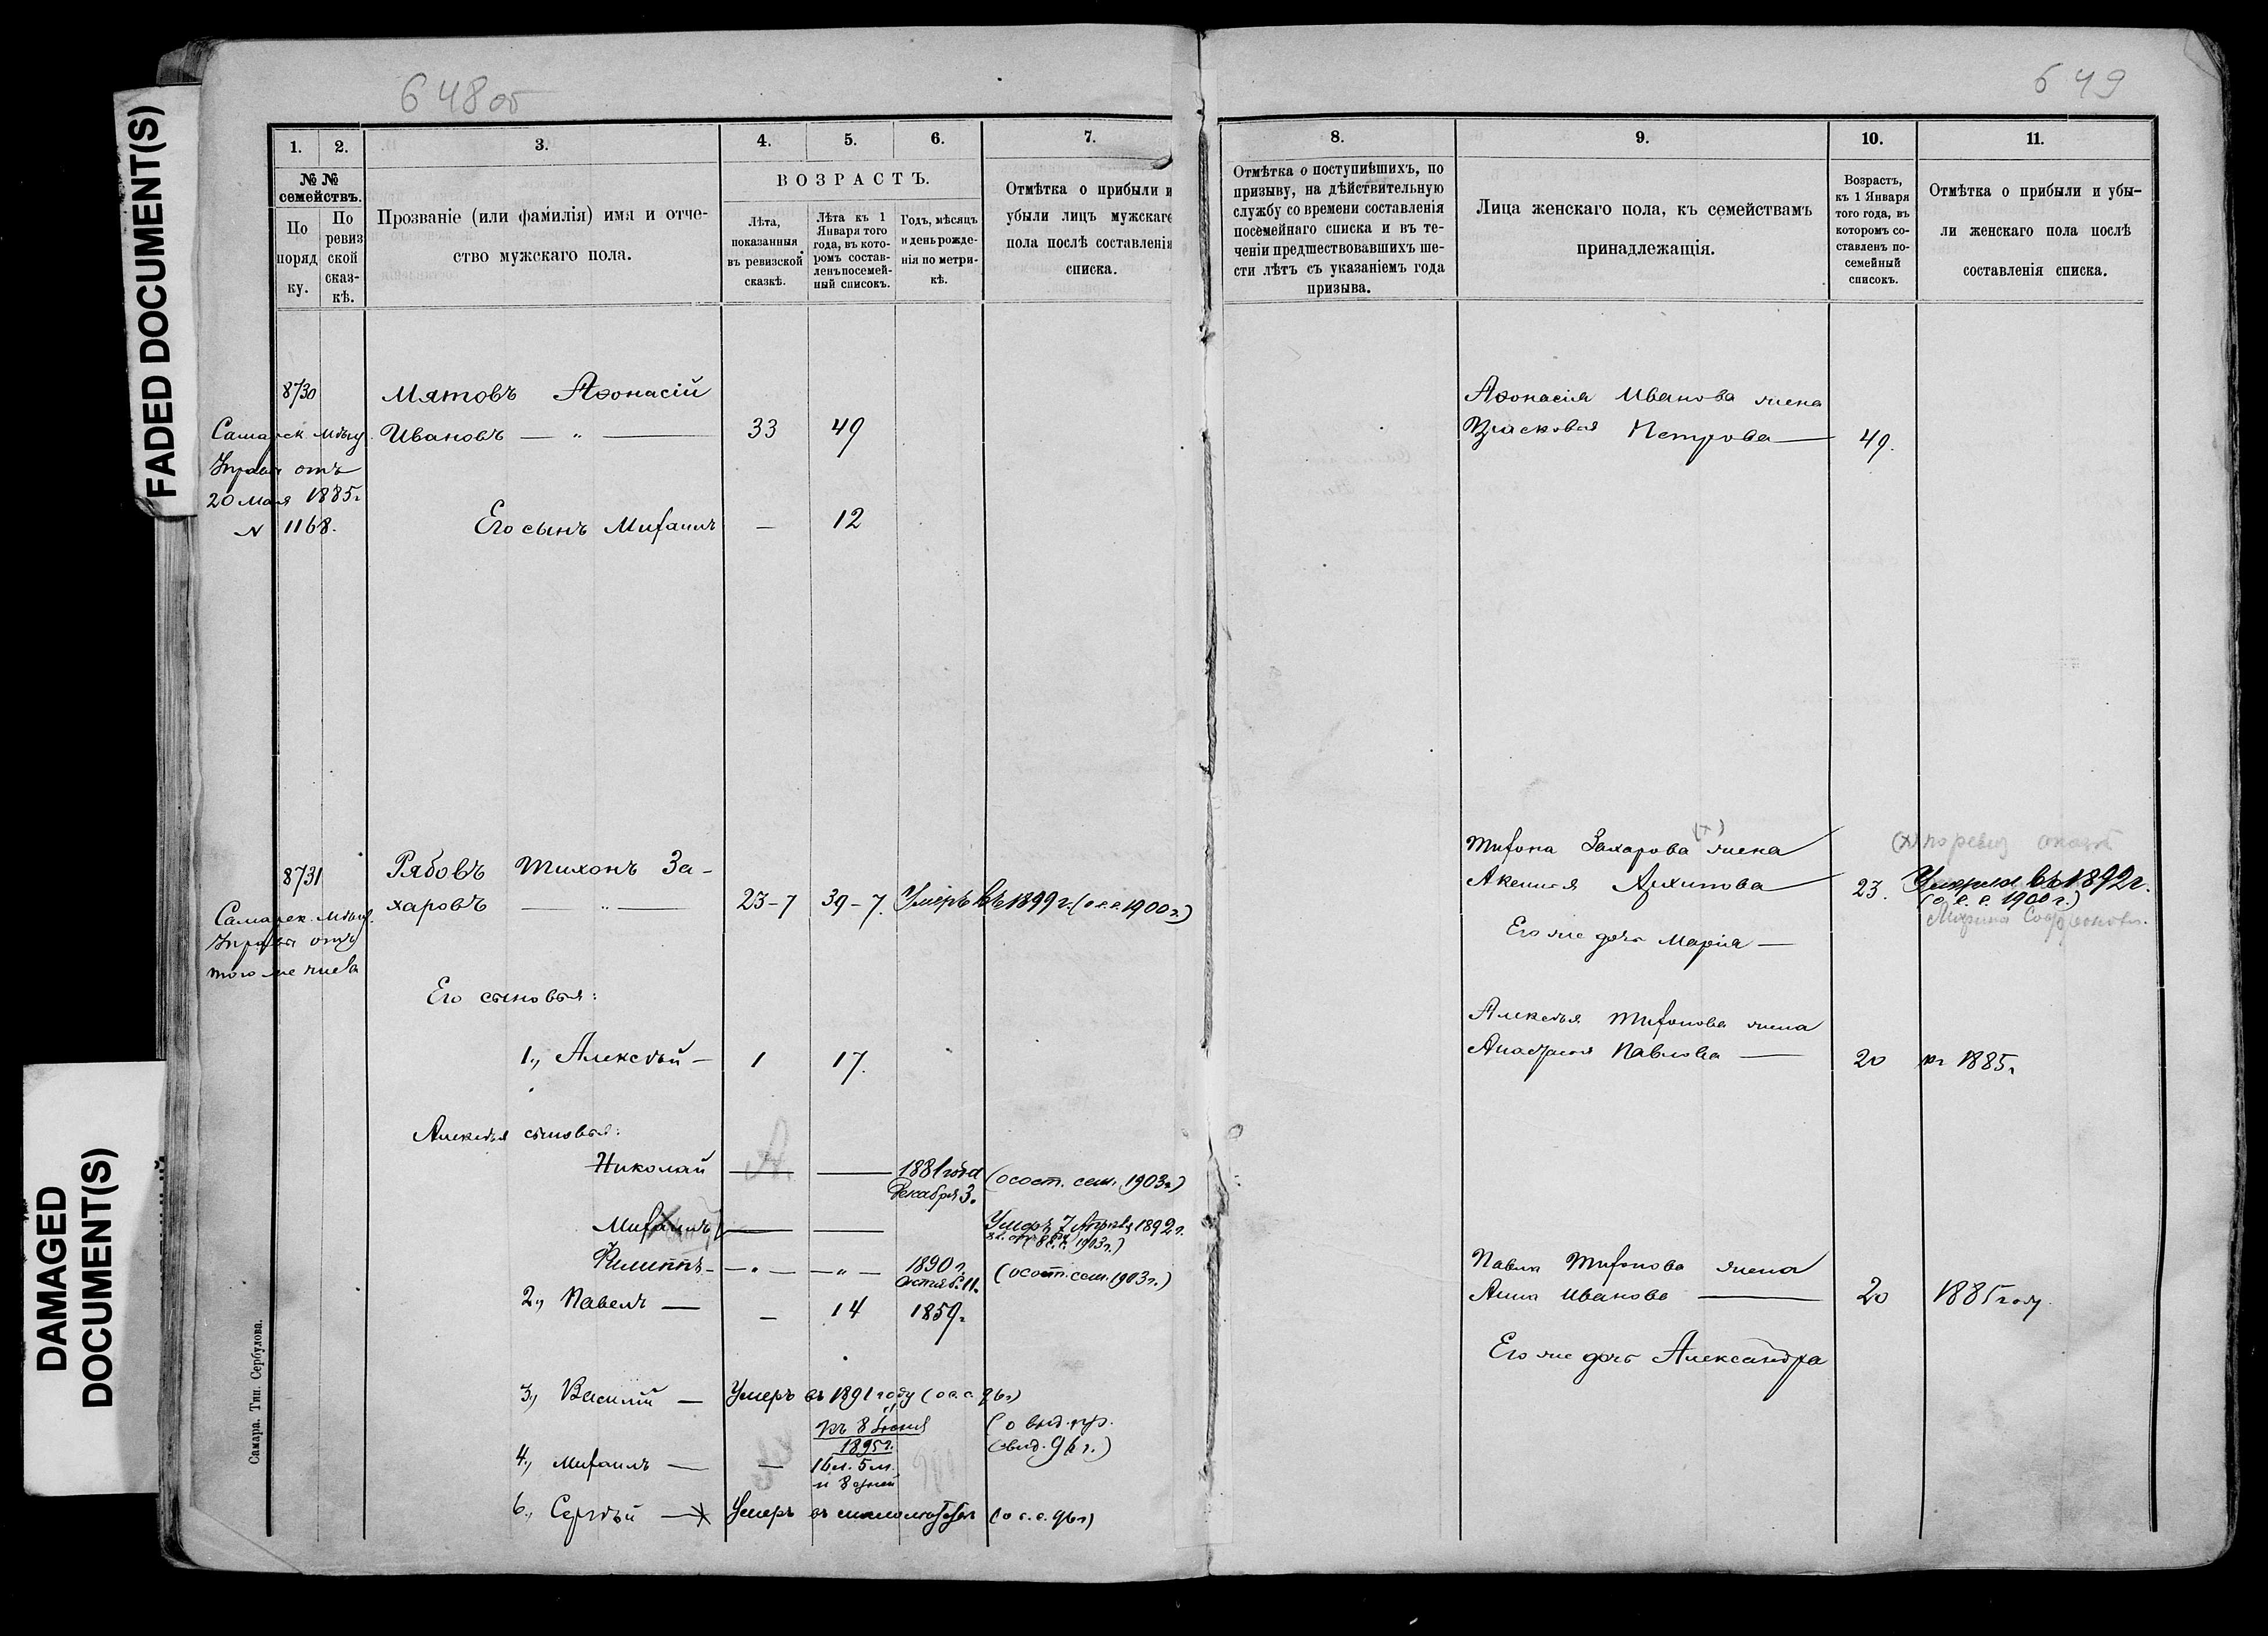 FADED DOCUMENT(S)
DAMAGED
DOCUMENT(S)
648об
649
1.
2.
3.
4.
5.
6.
7.
№№
семействъ.
По
поряд
ку.
По
ревиз
ской
сказ-
кѣ.
Прозваніе (или фамилія) имя и отче-
ство мужскаго пола.
ВОЗРАСТЪ.
Лѣта,
показанныя
въ ревизской
сказкѣ.
Лѣта къ 1
Января того
года, въ кото-
ромъ состав-
ленъ посемей-
ный списокъ.
Годъ, мѣсяцъ
и день рожде-
нія по метри-
кѣ.
Отмѣтка о прибыли и
убыли лицъ мужскаго
пола послѣ составленія
списка.
8730
Мятовъ Афонасій
Самарск. Мѣщ.
Ивановъ — „ — 33 49
Управы отъ
20 Мая 1885г
N 1168.
Его сынъ Михаилъ — 12
8731
Рябовъ Тихонъ За-
харовъ — „ — 23-7 39-7. Умеръ въ 1899 г. (о с.с. 1900 г.)
Самарск. Мѣщ.
Управы отъ
того же числа
Его сыновья:
1., Алексѣй — 1 17.
Алексѣя сыновья:
Николай — — 1881 года (о сост. сем. 1903 г.)
Декабря 3.
Михаилъ — — Умеръ 7 Апрѣля 1892 г.
1903 г.)
Филиппъ — „ — — „ — 1890 г. (о сост. сем. 1903 г.)
Октяб. 11.
2., Павелъ — — 14 1859г
3., Василій — Умеръ въ 1891 году (о с. с. 96 г)
къ 8 Іюня
1895 г.
4., Михаилъ — — 16 л. 5 м.
и 8 дней
(о выд. пр.
свид. 96 г.)
6., Сергѣй — Умеръ въ (о с. с. 96 г)
Самара. Тип. Сербулова.
8.
9.
10.
11.
Отмѣтка о поступившихъ, по
призыву, на дѣйствительную
службу со времени составленія
посемейнаго списка и въ те-
ченіи предшествовавшихъ ше-
сти лѣтъ съ указаніемъ года
призыва.
Лица женскаго пола, къ семействамъ
принадлежащія.
Возрастъ,
къ 1 Января
того года, въ
которомъ со-
ставленъ по-
семейный
списокъ.
Отмѣтка о прибыли и убы-
ли женскаго пола послѣ
составленія списка.
Афонасія Иванова жена
Прасковья Петрова — 49.
Тихона Захарова (х) жена (х) по ревиз
Аксинья Архипова 23. Умерла въ 1892 г.
(о с. с. 1900 г.)
Его же дочь Марія —
Алексѣя Тихонова жена
Анастасія Павлова — 20 1885г
Павла Тихонова жена
Анна Иванова — 20 1885 году.
Его же дочь Александра